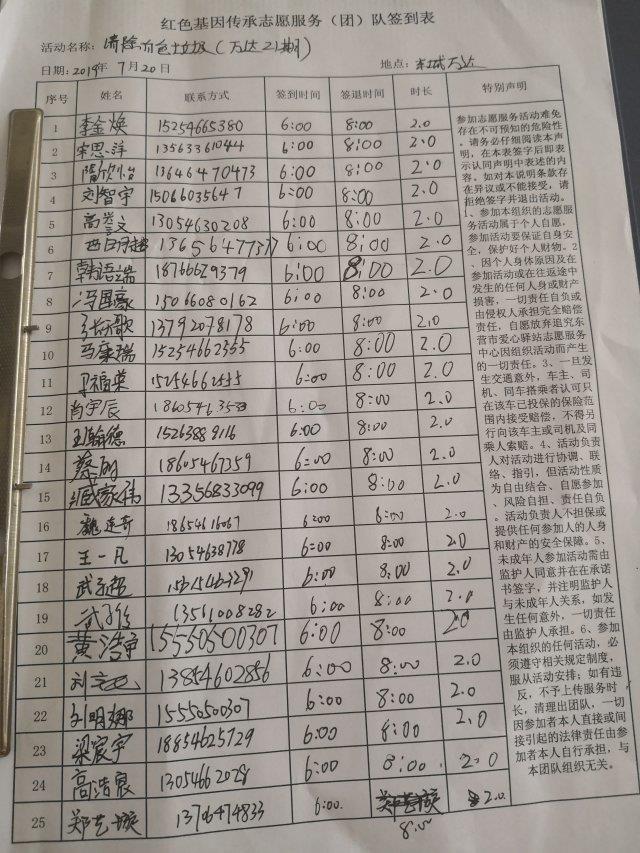 红色基因传承志愿服务（团）队签到表
活动名称：清除白色垃圾（万达21期）
日期：2019年7月20日 地点：东城万达
序号 姓名 联系方式 签到时间 签退时间 时长 特别声明
1 李金焕 15254665380 6:00 8:00 2.0
2 宋思洋 13563361044 6:00 8:00 2.0
3 隋欣怡 13646470473 6:00 8:00 2.0
4 刘智宇 15066035647 6:00 8:00 2.0
5 高誉文 13054630208 6:00 8:00 2.0
6 6:00 8:00 2.0
7 韩语端 18766629379 6:00 8:00 2.0
8 冯国豪 15066080162 6:00 8:00 2.0
9 13792078178 6:00 8:00 2.0
10 马康瑞 15254662555 6:00 8:00 2.0
11 卫福英 15254662555 6:00 8:00 2.0
12 肖宇辰 6:00 8:00 2.0
13 王翰德 15263889116 6:00 8:00 2.0
14 蔡明 18605467359 6:00 8:00 2.0
15 臧家伟 13356833099 6:00 8:00 2.0
16 18654616067 6:00 8:00 2.0
17 王一凡 13054638778 6:00 8:00 2.0
18 武子超 6:00 8:00 2.0
19 13561008282 6:00 8:00 2.0
20 黄浩宇 15550500307 6:00 8:00 2.0
21 13854602856 6:00 8:00 2.0
22 刘明娜 15550500307 6:00 8:00 2.0
23 梁宸宇 18854625729 6:00 8:00 2.0
24 高浩泉 13054662028 6:00 8:00 2.0
25 郑艺璇 13706474833 6:00 8:00 2.0
参加志愿服务活动难免
存在不可预知的危险性
。请务必仔细阅读本声
明，在本表签字后即表
示认同声明中表述的内
容。如对本说明条款存
在异议或不能接受，请
拒绝签字并退出活动。
1、参加本组织的志愿服
务活动属于个人自愿，
参加活动要保证自身安
全，保护好个人财物。2
、因个人身体原因及在
参加活动或在往返途中
发生的任何人身或财产
损害，一切责任自负或
由侵权人承担完全赔偿
责任，自愿放弃追究东
营市爱心驿站志愿服务
中心因组织活动而产生
的一切责任。3、一旦发
生交通意外，车主、司
机、同车搭乘者认可只
在该车已投保的保险范
围内接受赔偿，不得另
行向该车主或司机及同
乘人索赔。4、活动负责
人对活动进行协调、联
络、指引，但活动性质
为自由结合、自愿参加
、风险自担、责任自负
。活动负责人不担保或
提供任何参加人的人身
和财产的安全保障。5、
未成年人参加活动需由
监护人同意并在在承诺
书签字，并注明监护人
与未成年人关系，如发
生任何意外，一切责任
由监护人承担。6、参加
本组织的任何活动，必
须遵守相关规定制度，
服从活动安排；如有违
反，不予上传服务时
长，清理出团队，一切
因参加者本人直接或间
接引起的法律责任由参
加者本人自行承担，与
本团队组织无关。